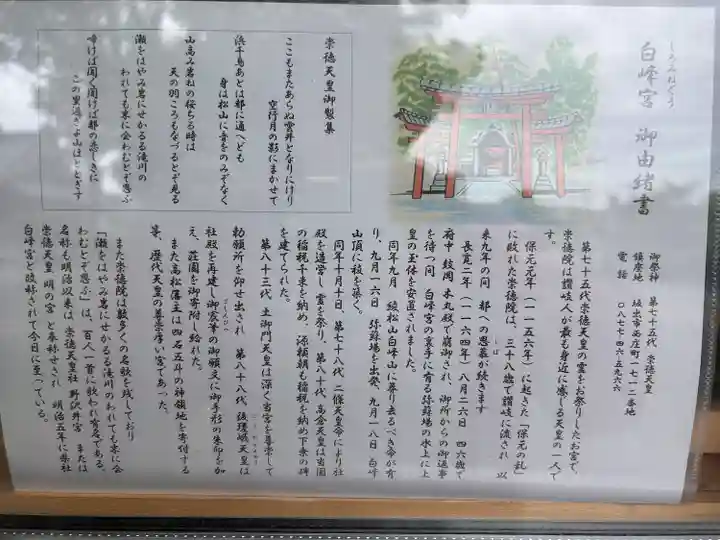 しろみねぐう
白峰宮 御由緒書
御祭神 第七十五代 崇徳天皇
鎮座地 坂出市西庄町一七一二番地
電話 〇八七七-四六-五九六六
第七十五代崇徳天皇の霊をお祭りしたお宮で、
崇徳院は讃岐人が最も身近に感じる天皇の一人で
す。
保元元年(一一五六年)に起きた「保元の乱」
に敗れた崇徳院は、三十八歳で讃岐に流され 以
来九年の間 都への思慕が続きます
長寛二年(一一六四年)八月二六日 四六歳で
府中 鼓岡 木丸殿で崩御され、御所からの御返事
を待つ間 白峰宮の裏手に有る弥蘇場の水上に上
皇の玉体を安置されました。
同年九月 綾松山白峰山に葬り去るべき命が有
り、九月一六日 弥蘇場を出発、九月一八日 白峰
山頂に稜を築く。
同年十月十日、第七十八代 二條天皇命により社
殿を造営し霊を祭り、第八十代 高倉天皇は当国
の稲税千束を納め、源頼朝も稲税を納め下乗の碑
を建てられた。
第八十三代 土御門天皇は深く当宮を尊崇して
勅願所を仰せ出され、第八十八代 後嵯峨天皇は
社殿を再建し御宸筆の御願文に御手形の朱印を加
え、荘園を御寄附し給れた。
また高松藩主は四石五斗の神領地を寄付する
等、歴代天皇の尊崇孝い宮であった。
また崇徳院は数多くの名歌を残しており
「瀬をはやみ岩にせかるる滝川のわれても末に会
わむとぞ思ふ」は、百人一首に歌われ有名である。
名称も明治以来は 崇徳天皇社 野沢井宮 または
崇徳天皇 明の宮 と奉称せされ 明治五年に県社
白峰宮と改称されて今日に至っている。
崇徳天皇御製集
ここもまたあらぬ雲井となりにけり
空行月の影にまかせて
浜千鳥あとは都に通へども
身は松山に音をのみぞなく
山高み岩ねの桜ちる時は
天の羽ごろもなづるとぞ見る
瀬をはやみ岩にせかるる滝川の
われても末に会わむとぞ思ふ
啼けば聞く聞けば都の恋しきに
この里過ぎよ山ほととぎす